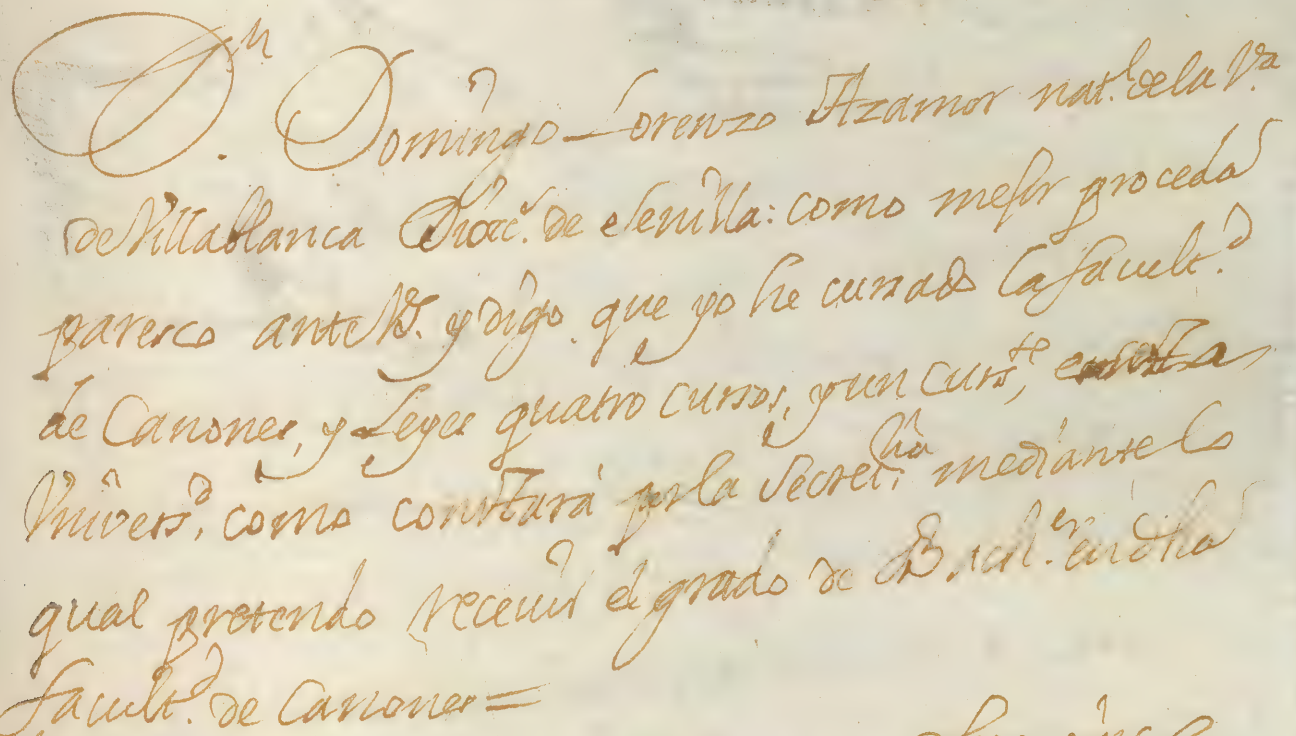 Dn. Domingo Lorenzo Azamor nat.l de la V.a
de Villablanca Dioc.s de Sevilla: como mejor proceda
paresco ante V.S. y digo que yo he cursado la facult.d
de Canones, y Leyes quatro cursos, y un curs.te, en esta
Univers.d, como constará por la Secret.ria mediante lo
qual pretendo receuir el grado de Bach.er en dha
facult.d de Canones =